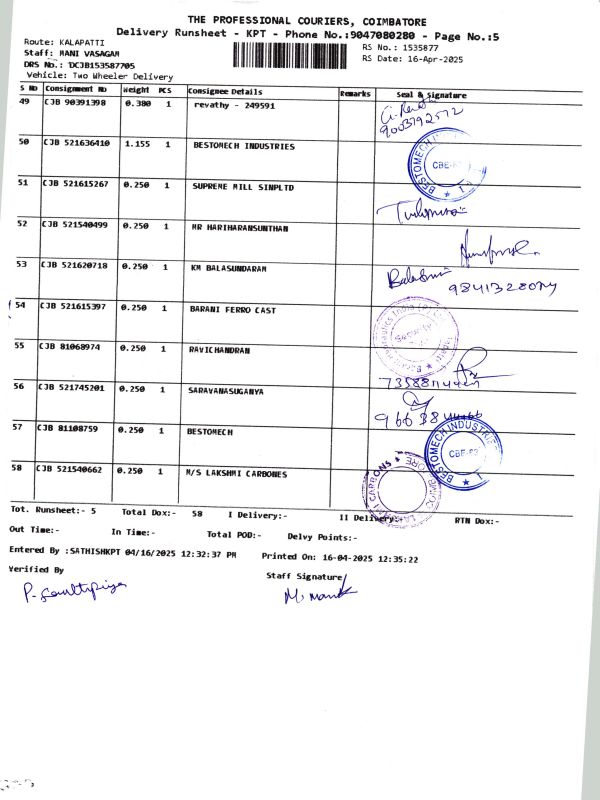 THE PROFESSIONAL COURIERS, COIMBATORE
Delivery Runsheet - KPT - Phone No.:9047080280 - Page No.:5
Route: KALAPATTI
Staff: MANI VASAGAM
DRS No.: DCJB153587705
Vehicle: Two Wheeler Delivery
RS No.: 1535877
RS Date: 16-Apr-2025
S No Consignment No Weight PCS Consignee Details Remarks Seal & Signature
49 CJB 90391398 0.380 1 revathy - 249591
9003792572
50 CJB 521636410 1.155 1 BESTOMECH INDUSTRIES
BESTOMECH CBE-
51 CJB 521615267 0.250 1 SUPREME MILL SINPLTD
52 CJB 521540499 0.250 1 MR HARIHARANSUNTHAN
53 CJB 521620718 0.250 1 KM BALASUNDARAM
54 CJB 521615397 0.250 1 BARANI FERRO CAST
55 CJB 81068974 0.250 1 RAVICHANDRAN
56 CJB 521745201 0.250 1 SARAVANASUGANYA
57 CJB 81108759 0.250 1 BESTOMECH
BESTOMECH INDUSTRIES CBE-
58 CJB 521540662 0.250 1 M/S LAKSHMI CARBONES
LAKSHMI CARBONS
Tot. Runsheet:- 5 Total Dox:- 58 I Delivery:- II Delivery:- RTN Dox:-
Out Time:- In Time:- Total POD:- Delvy Points:-
Entered By :SATHISHKPT 04/16/2025 12:32:37 PM Printed On: 16-04-2025 12:35:22
Verified By
Staff Signature/